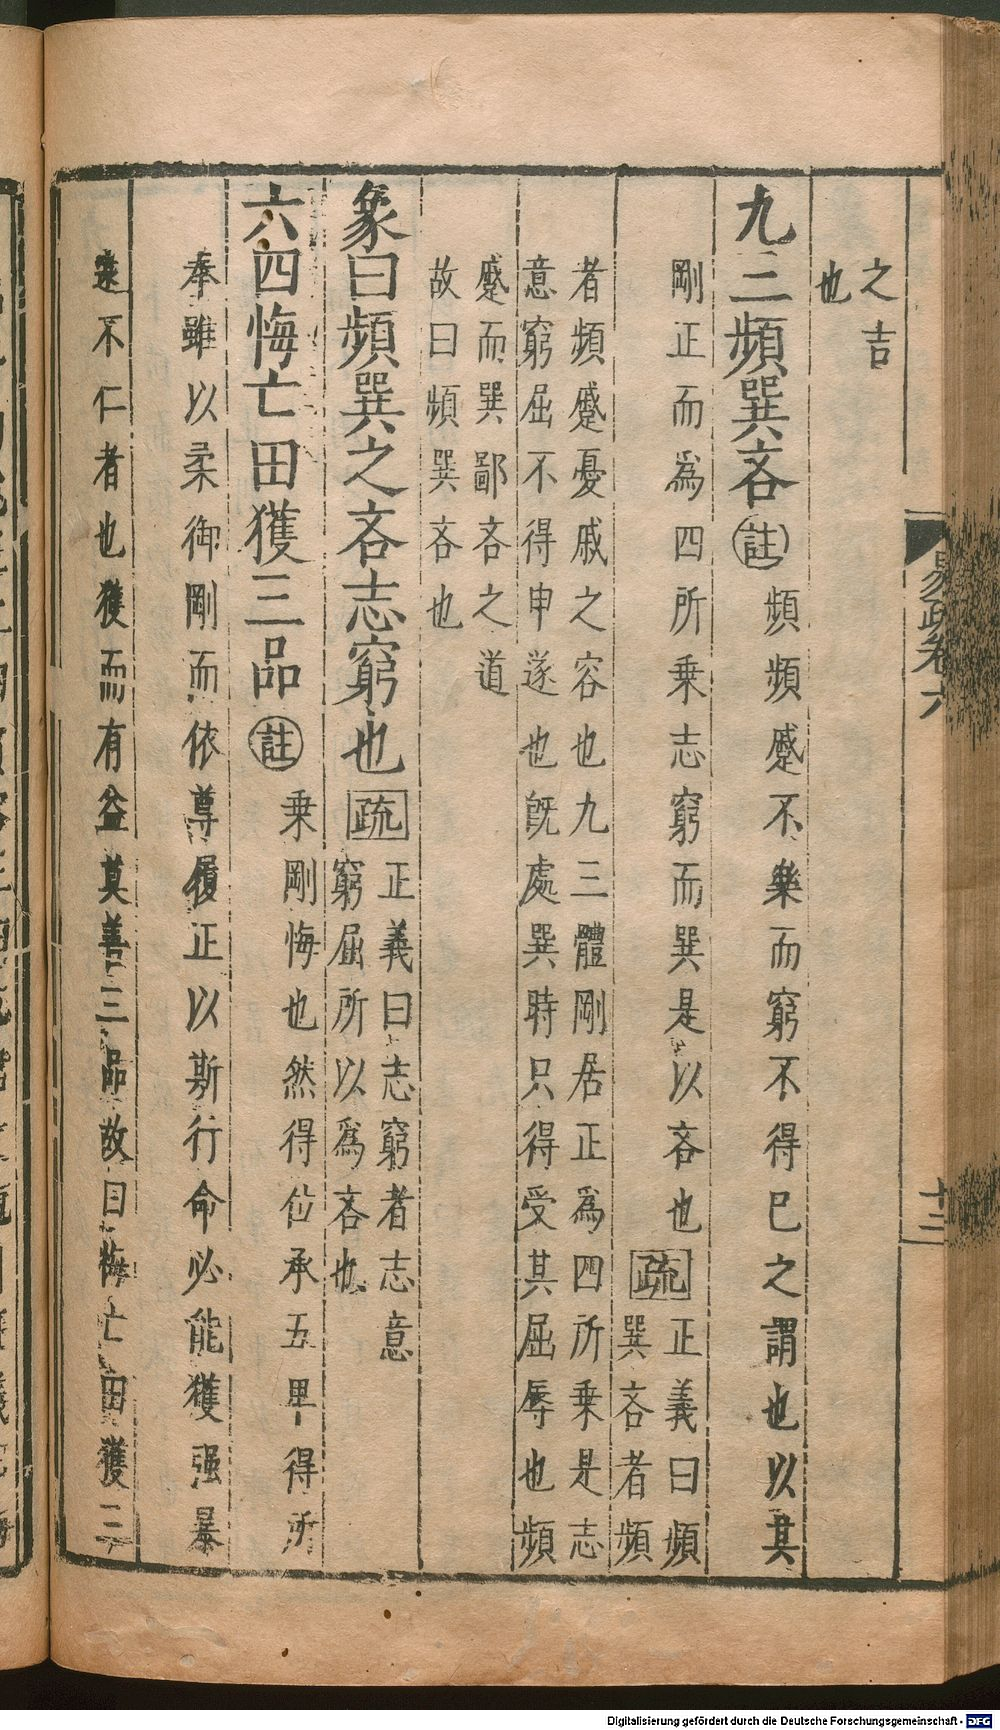 之吉
也
九三頻巽吝註頻頻蹙不樂而窮不得巳之謂也以其
剛正而爲四所乗志窮而巽是以吝也疏正義曰頻
巽吝者頻
者頻蹙憂戚之容也九三體剛居正爲四所乗是志
意窮屈不得申遂也旣處巽時只得受其屈辱也頻
蹙而巽鄙吝之道
故曰頻巽吝也
象曰頻巽之吝志窮也疏正義曰志窮者志意
窮屈所以爲吝也
六四悔亡田獲三品註乗剛悔也然得位承五卑得所
奉雖以柔御剛而依尊履正以斯行命必能獲强暴
遠不仁者也獲而有益莫善三品故曰悔亡田獲三
易疏卷六
十三
Digitalisierung gefördert durch die Deutsche Forschungsgemeinschaft - DFG